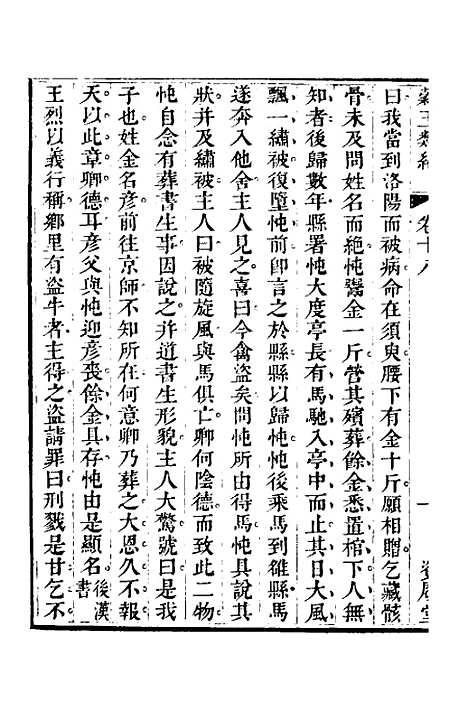 卷十八
曰我當到洛陽而被病命在須臾腰下有金十斤願相贈乞藏骸
骨未及問姓名而絕忳鬻金一斤營其殯葬餘金悉置棺下人無
知者後歸數年縣署忳大度亭長有馬馳入亭中而止其日大風
飄一繡被復墮忳前卽言之於縣縣以歸忳忳後乘馬到雒縣馬
遂奔入他舍主人見之喜曰今禽盜矣問忳所由得馬忳具說其
狀幷及繡被主人曰被隨旋風與馬俱亡卿何陰德而致此二物
忳自念有葬書生事因說之幷道書生形貌主人大驚號曰是我
子也姓金名彥前往京師不知所在何意卿乃葬之大恩久不報
天以此章卿德耳彥父與忳迎彥喪餘金具存忳由是顯名後漢書
王烈以義行稱鄉里有盜牛者主得之盜請罪曰刑戮是甘乞不